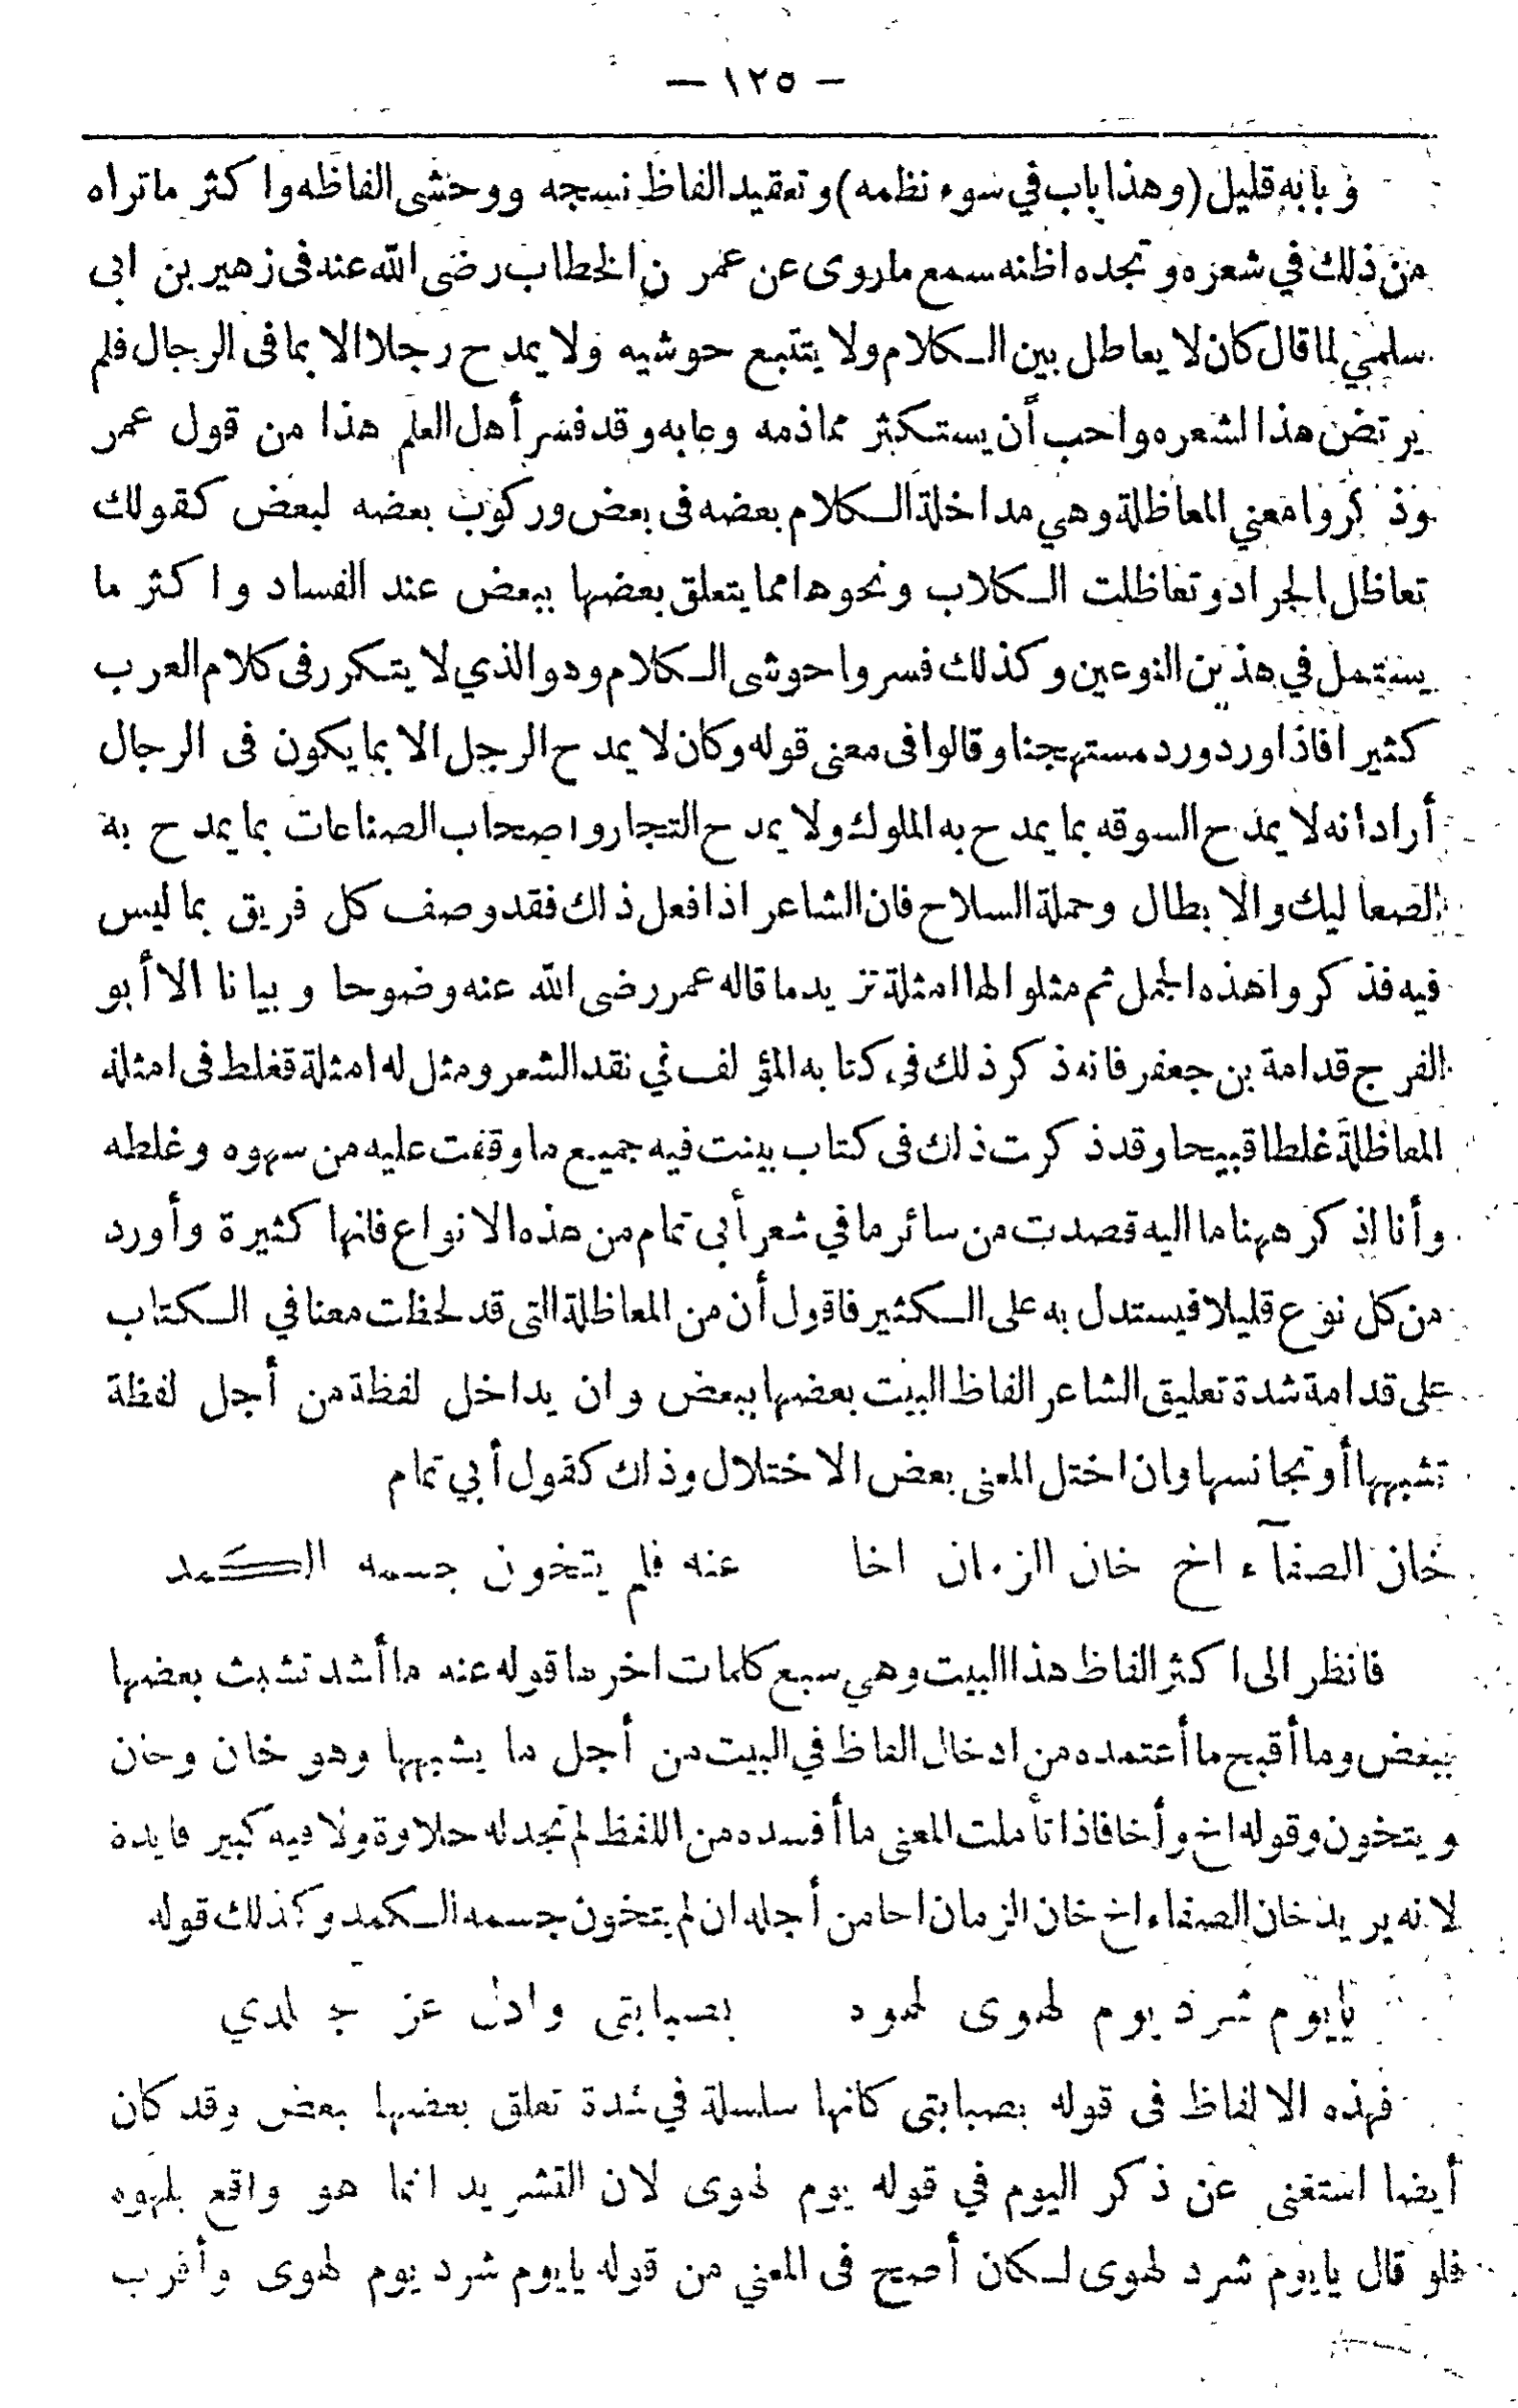 — ١٢٥ —
وبابه قليل (وهذا باب في سوء نظمه) وتعقيد الفاظ نسجه ووحشى الفاظه واكثر ماتراه
من ذلك في شعره وتجده اظنه سمع ماروى عن عمر ن الخطاب رضى الله عنه فى زهير بن ابى
سلمى لما قال كان لا يعاطل بين الكلام ولا يتتبع حوشيه ولا يمدح رجلا الا بما فى الرجال فلم
يرتض هذا لشعره واحب أن يستكثر مماذمه وعابه وقد فسر أهل العلم هذا من قول عمر
وذكروا معني المعاظلة وهي مداخلة الكلام بعضه فى بعض وركوب بعضه لبعض كقولك
تعاظل الجراد وتعاظلت الكلاب ونحوها مما يتعلق بعضها ببعض عند الفساد واكثر ما
يستعمل في هذين النوعين وكذلك فسروا حوشى الكلام وهو الذي لا يتكرر فى كلام العرب
كثيرا فاذا ورد ورد مستهجنا وقالوا فى معنى قوله وكان لا يمدح الرجل الا بما يكون فى الرجال
أراد انه لا يمدح السوقه بما يمدح به الملوك ولا يمدح التجار واصحاب الصناعات بما يمدح به
الصعاليك والابطال وحملة السلاح فان الشاعر اذا فعل ذلك فقد وصف كل فريق بما ليس
فيه فذكروا هذه الجمل ثم مثلوا لها امثلة تزيد ما قاله عمر رضى الله عنه وضوحا وبيانا الا أبو
الفرج قدامة بن جعفر فانه ذكر ذلك فى كتابه المؤلف في نقد الشعر ومثل له امثلة فغلط فى امثلة
المعاظلة غلطا قبيحا وقد ذكرت ذلك فى كتاب بينت فيه جميع ما وقفت عليه من سهوه وغلطه
وأنا اذكر ههنا ما اليه قصدت من سائر ما في شعر أبى تمام من هذه الانواع فانها كثيرة وأورد
من كل نوع قليلا فيستدل به على الكثير فاقول أن من المعاظلة التى قد لحظت معنا في الكتاب
على قدامة شدة تعليق الشاعر الفاظ البيت بعضها ببعض وان يداخل لفظة من أجل لفظة
تشبهها أو تجانسها وان اختل المعنى بعض الاختلال وذلك كقول أبي تمام
خان الصفآء اخ خان الزمان اخا عنه فلم يتخون جسمه الكمد
فانظر الى اكثر الفاظ هذا البيت وهي سبع كلمات اخرها قوله عنه ما أشد تشبث بعضها
ببعض وما أقبح ما أعتمده من ادخال الفاظ في البيت من أجل ما يشبهها وهو خان وخان
ويتخون وقوله اخ وأخا فاذا تأملت المعنى ما أفسده من اللفظ لم تجد له حلاوة ولا فيه كبير فايدة
لانه يريد خان الصفاء اخ خان الزمان اخا من أجله ان لم يتخون جسمه الكمد وكذلك قوله
يايوم شرد يوم لهوى لهوه بصبابتى واذل عز جلدي
فهذه الالفاظ فى قوله بصبابتى كانها سلسلة في شدة تعلق بعضها بعض وقد كان
أيضا استغنى عن ذكر اليوم في قوله يوم لهوى لان التشريد انما هو واقع بلهوه
فلو قال يايوم شرد لهوى لكان أصح فى المعني من قوله يايوم شرد يوم لهوى وأقرب